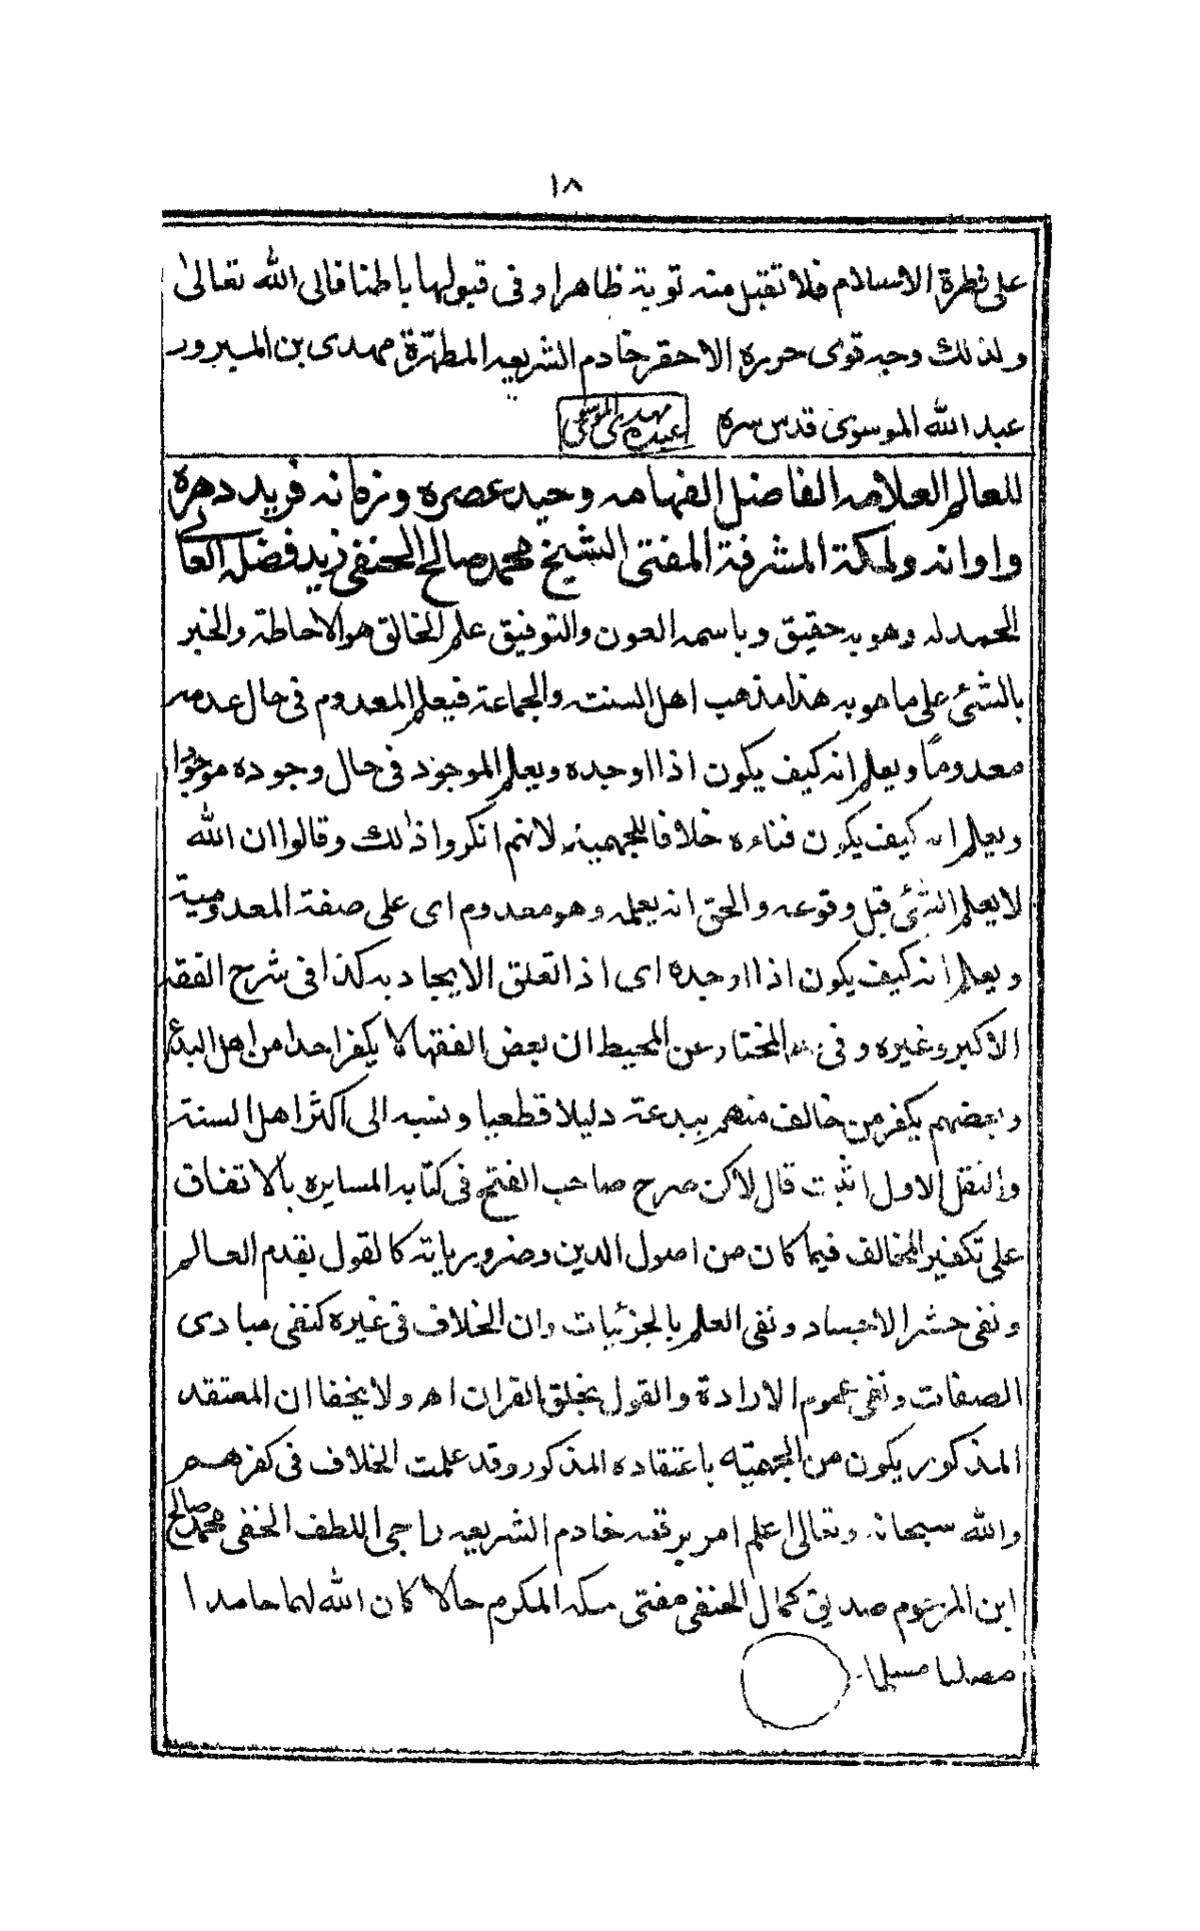 ١٨
على فطرة الاسلام فلا تقبل منه توبة ظاهرا وفى قبولها باطنا فالى الله تعالى
ولذلك وجه قوى حرره الاحقر خادم الشريعه المطهّرة مهدى بن المبرور
عبد الله الموسوى قدس سره عبده مهدى الموسوى
للعالم العلامه الفاضل الفهامه وحيد عصره وزمانه فريد دهره
واوانه ولمكة المشرفة المفتى الشيخ محمد صالح الحنفى زيد فضله العالى
الحمد له وهو به حقيق وباسمه العون والتوفيق علم الخالق هو الاحاطة والخبر
بالشئ على ما هو به هذا مذهب اهل السنت والجماعة فيعلم المعدوم فى حال عدمه
معدوماً ويعلم انه كيف يكون اذا اوجده ويعلم الموجود فى حال وجوده موجودا
ويعلم انه كيف يكون فناءه خلافا للجهمية لانهم انكروا ذالك وقالوا ان الله
لا يعلم الشئ قبل وقوعه والحق انه يعلمه وهو معدوم اى على صفة المعدومية
ويعلم انه كيف يكون اذا اوجده اى اذا تعلق الايجاد به كذا فى شرح الفقه
الاكبر وغيره وفى المختار عن المحيط ان بعض الفقها لا يكفر احدا من اهل البدع
وبعضهم يكفر من خالف منهم ببدعته دليلا قطعيا ونسبه الى اكثر اهل السنة
والنقل الاول اثبت قال لاكن صرح صاحب الفتح فى كتابه المسايره بالاتفاق
على تكفير المخالف فيما كان من اصول الدين وضرورياته كالقول بقدم العالم
ونفى حشر الاجساد ونفى العلم بالجزئيات وان الخلاف فى غيره كنفى مبادى
الصفات ونفى عموم الارادة والقول بخلق القران اه ولا يخفا ان المعتقد
المذكور يكون من الجهميه باعتقاده المذكور وقد علمت الخلاف فى كفرهم
والله سبحانه وتعالى اعلم امر برقمه خادم الشريعه راجى اللطف الخفى محمد صالح
ابن المرحوم صديق كمال الحنفى مفتى مكه المكرم حالا كان الله لهما حامدا
مصليا مسلما